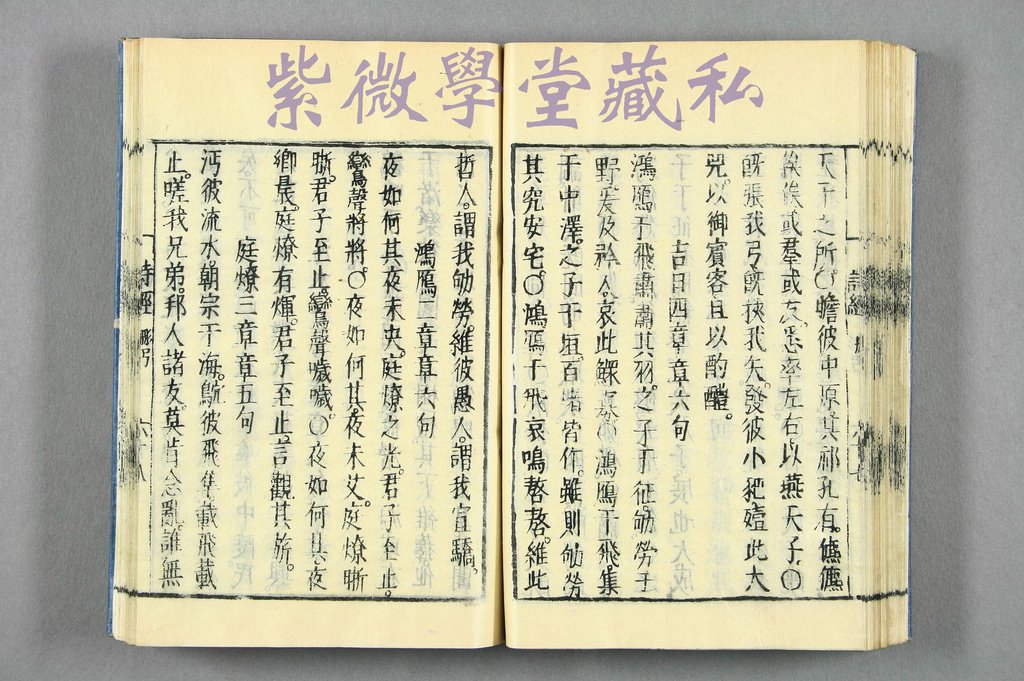 紫微學堂藏私
天子之所○瞻彼中原其祁孔有。儦儦
俟俟或羣或友。悉率左右以燕天子。○
既張我弓既挾我矢。發彼小豝殪此大
兕以御賓客且以酌醴。
吉日四章章六句
鴻鴈于飛肅肅其羽。之子于征劬勞于
野爰及矜人。哀此鰥寡○鴻鴈于飛。集
于中澤。之子于垣。百堵皆作。雖則劬勞
其究安宅○鴻鴈于飛哀鳴嗸嗸。維此
哲人。謂我劬勞維彼愚人。謂我宣驕。
鴻鴈三章章六句
夜如何其夜未央。庭燎之光。君子至止。
鸞聲將將○夜如何其。夜未艾。庭燎晣
晣。君子至止。鸞聲噦噦○夜如何其夜
鄉晨。庭燎有煇。君子至止言觀其旂。
庭燎三章章五句
沔彼流水。朝宗于海。鴥彼飛隼。載飛載
止。嗟我兄弟。邦人諸友。莫肯念亂。誰無
詩經
彤弓